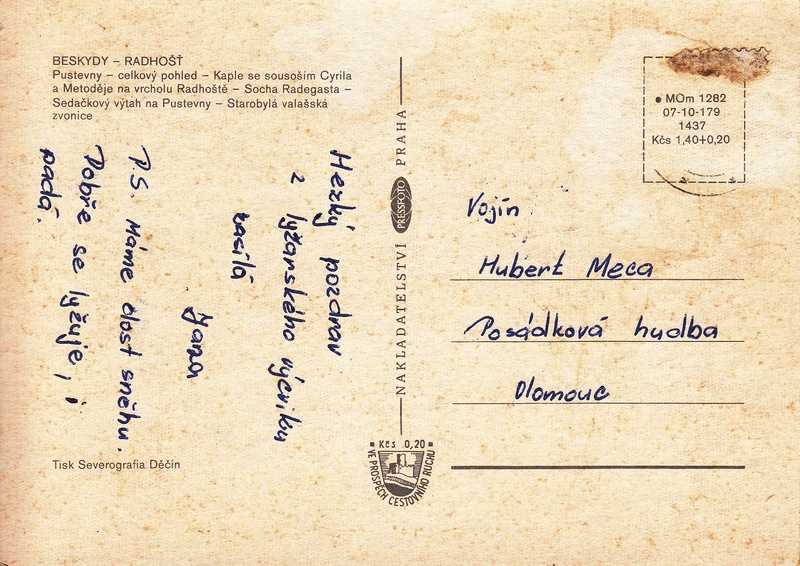 BESKYDY – RADHOŠŤ
Pustevny – celkový pohled – Kaple se sousoším Cyrila
a Metoděje na vrcholu Radhoště – Socha Radegasta –
Sedačkový výtah na Pustevny – Starobylá valašská
zvonice
Hezký pozdrav
z lyžarského výcviku
zasílá
Jana
P.S. Máme dost sněhu.
Dobře se lyžuje, i
padá.
Tisk Severografia Děčín
NAKLADATELSTVÍ PRESSFOTO PRAHA
Kčs 0,20
VE PROSPĚCH CESTOVNÍHO RUCHU
MOm 1282
07-10-179
1437
Kčs 1,40+0,20
Vojín
Hubert Meca
Posádková hudba
Olomouc